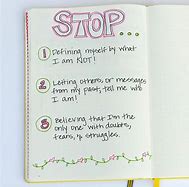 STOP...
1 Defining myself by what
I am NOT!
2 Letting others, or messages
from my past, tell me
who I am!
3 Believing that I'm the
only one with doubts,
fears, & struggles.